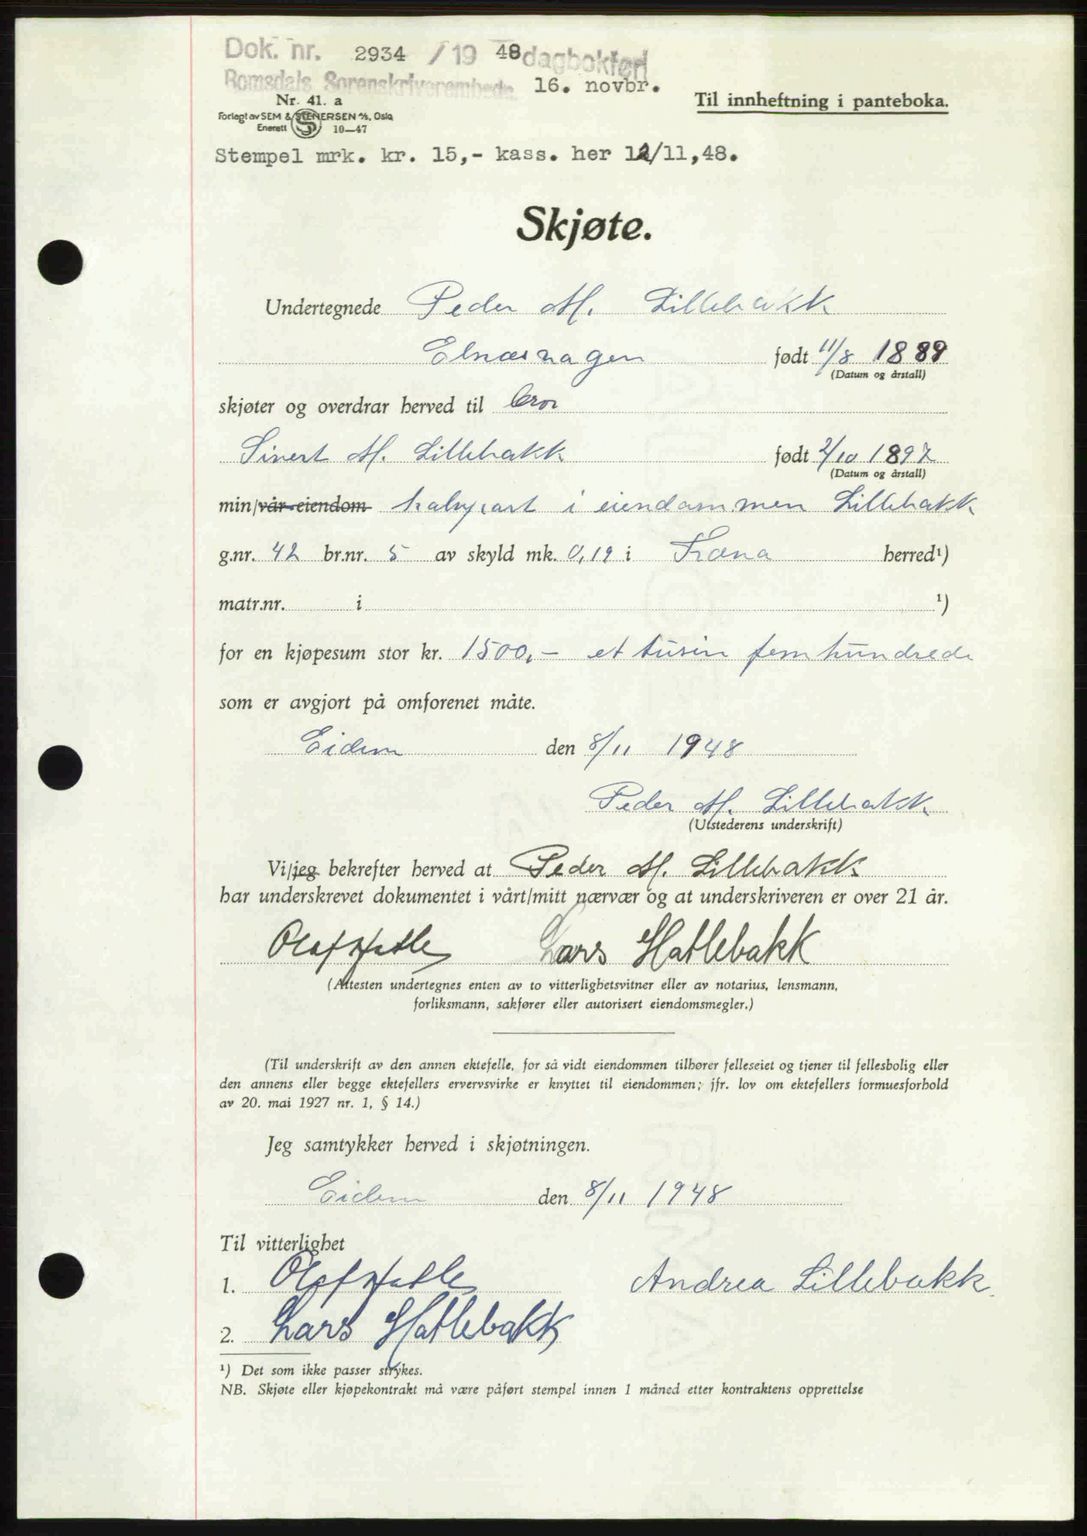 Dok. nr. 2934 /19 48 dagbokført
Romsdals Sorenskriverembede 16. novbr.
Nr. 41. a
Til innheftning i panteboka.
Forlagt av SEM & STENERSEN A/S, Oslo
Enerett S 10—47
Stempel mrk. kr. 15,- kass. her 12/11,48.
Skjøte.
Undertegnede Peder M. Lillebakk
Elnesvagen født 11/8 1889
(Datum og årstall)
skjøter og overdrar herved til bror
Sivert M. Lillebakk født 2/10 1897
(Datum og årstall)
min/vår eiendom halvpart i eiendommen Lillebakk
g.nr. 42 br.nr. 5 av skyld mk. 0,19 i Fræna herred¹)
matr.nr. i ¹)
for en kjøpesum stor kr. 1500,- et tusin femhundrede
som er avgjort på omforenet måte.
Eidem den 8/11 1948
Peder M. Lillebakk
(Utstederens underskrift)
Vi/jeg bekrefter herved at Peder M. Lillebakk
har underskrevet dokumentet i vårt/mitt nærvær og at underskriveren er over 21 år.
Olaf Hatle Lars Hatlebakk
(Attesten undertegnes enten av to vitterlighetsvitner eller av notarius, lensmann,
forliksmann, sakfører eller autorisert eiendomsmegler.)
(Til underskrift av den annen ektefelle, for så vidt eiendommen tilhører felleseiet og tjener til fellesbolig eller
den annens eller begge ektefellers ervervsvirke er knyttet til eiendommen; jfr. lov om ektefellers formuesforhold
av 20. mai 1927 nr. 1, § 14.)
Jeg samtykker herved i skjøtningen.
Eidem den 8/11 1948
Til vitterlighet
1. Olaf Hatle Andrea Lillebakk
2. Lars Hatlebakk
¹) Det som ikke passer strykes.
NB. Skjøte eller kjøpekontrakt må være påført stempel innen 1 måned etter kontraktens opprettelse